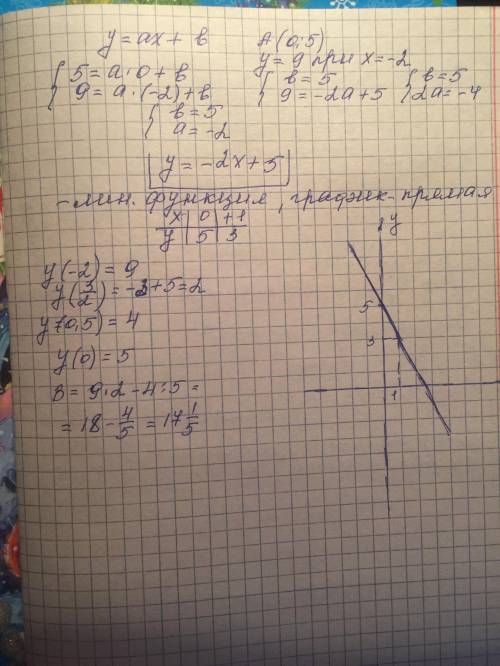 y = ax + в A(0;5)
y = 9 при x = -2
{ 5 = a·0 + в
9 = a·(-2) + в
{ в = 5
9 = -2a + 5
{ в = 5
2a = -4
{ в = 5
a = -2
y = -2x + 5
- лин. функция, график - прямая
x | 0 | +1
y | 5 | 3
y(-2) = 9
y(3/2) = -3 + 5 = 2
y(0,5) = 4
y(0) = 5
B = 9·2 - 4:5 =
= 18 - 4/5 = 17 1/5
y
5
3
1